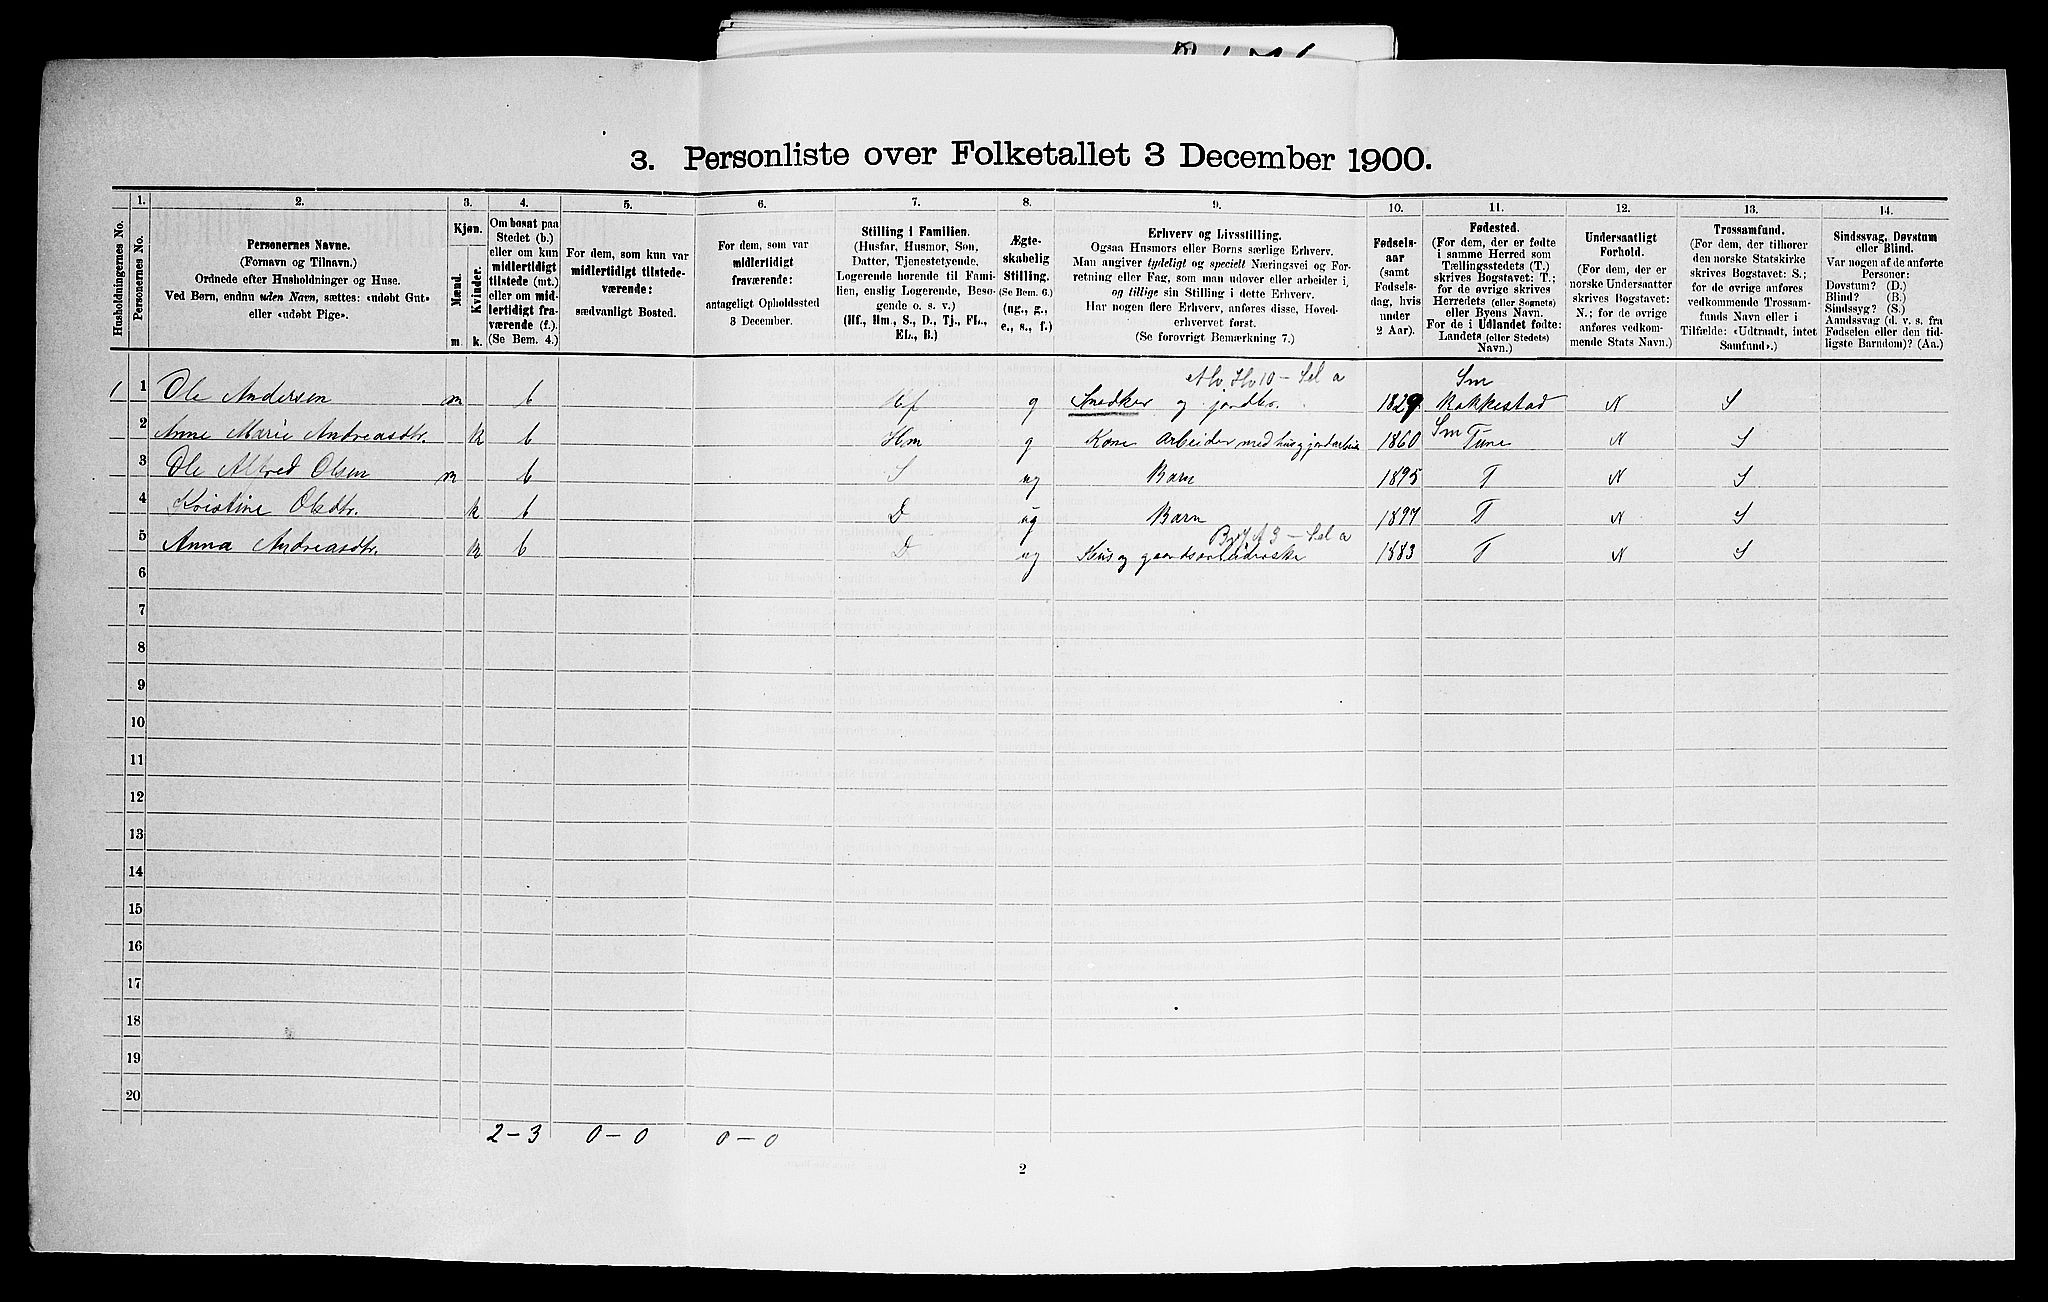 3. Personliste over Folketallet 3 December 1900.
Husholdningernes No.
1.
Personernes No.
2.
Personernes Navne.
(Fornavn og Tilnavn.)
Ordnede efter Husholdninger og Huse.
Ved Børn, endnu uden Navn, sættes: «udøbt Gut»
eller «udøbt Pige».
3.
Kjøn.
Mænd.
Kvinder.
m.
k.
4.
Om bosat paa
Stedet (b.)
eller om kun
midlertidigt
tilstede (mt.)
eller om mid-
lertidigt fra-
værende (f.).
(Se Bem. 4.)
5.
For dem, som kun var
midlertidigt tilstede-
værende:
sædvanligt Bosted.
6.
For dem, som var
midlertidigt
fraværende:
antageligt Opholdssted
3 December.
7.
Stilling i Familien.
(Husfar, Husmor, Søn,
Datter, Tjenestetyende,
Logerende hørende til Fami-
lien, enslig Logerende, Besø-
gende o. s. v.)
(Hf., Hm., S., D., Tj., FL.,
EL., B.)
8.
Ægte-
skabelig
Stilling.
(Se Bem. 6.)
(ug., g.,
e., s., f.)
9.
Erhverv og Livsstilling.
Ogsaa Husmors eller Børns særlige Erhverv.
Man angiver tydeligt og specielt Næringsvei og For-
retning eller Fag, som man udøver eller arbeider i,
og tillige sin Stilling i dette Erhverv.
Har nogen flere Erhverv, anføres disse, Hoved-
erhvervet først.
(Se forøvrigt Bemærkning 7.)
10.
Fødsels-
aar
(samt
Fødsels-
dag, hvis
under
2 Aar).
11.
Fødested.
(For dem, der er fødte
i samme Herred som
Tællingsstedets (T.)
skrives Bogstavet: T.;
for de øvrige skrives
Herredets (eller Sognets)
eller Byens Navn.
For de i Udlandet fødte:
Landets (eller Stedets)
Navn.)
12.
Undersaatligt
Forhold.
(For dem, der er
norske Undersaatter
skrives Bogstavet:
N.; for de øvrige
anføres vedkom-
mende Stats Navn.)
13.
Trossamfund.
(For dem, der tilhører
den norske Statskirke
skrives Bogstavet: S.;
for de øvrige anføres
vedkommende Trossam-
funds Navn eller i
Tilfælde: «Udtraadt, intet
Samfund».)
14.
Sindssvag, Døvstum
eller Blind.
Var nogen af de anførte
Personer:
Døvstum? (D.)
Blind? (B.)
Sindssyg? (S.)
Aandssvag (d. v. s. fra
Fødselen eller den tid-
ligste Barndom)? (Aa.)
Hv 10 – Sel a
1 1 Ole Andersen m b Hf g Snedker og jordbr. 1829 Sm Rakkestad N S
2 Anne Marie Andreasdtr. k b Hm g Kone Arbeider med hus og jordarbeide 1860 Sm Tune N S
3 Ole Alfred Olsen m b S ug Barn 1895 T N S
4 Kristine Olsdtr. k b D ug Barn 1897 T N S
3 – Sel a
5 Anna Andreasdtr. k b D ug Hus og gaardsarbeiderske 1883 T N S
6
7
8
9
10
11
12
13
14
15
16
17
18
19
20
2 – 3 0 – 0 0 – 0
2